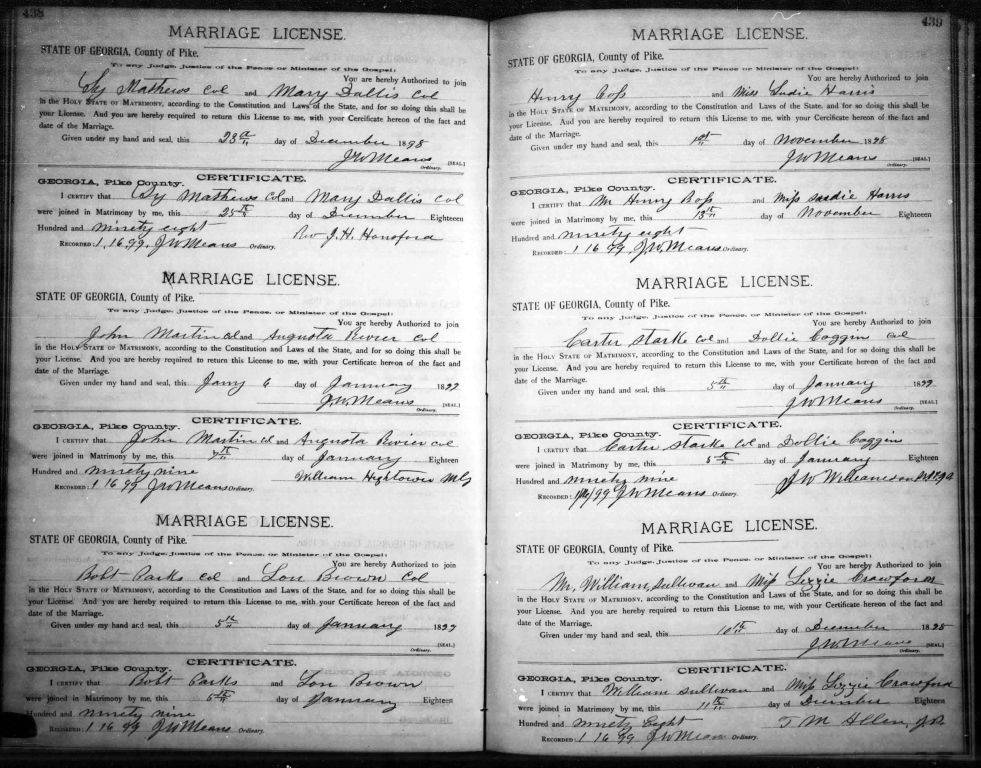 438
MARRIAGE LICENSE.
STATE OF GEORGIA, County of Pike.
To any Judge, Justice of the Peace or Minister of the Gospel:
You are hereby Authorized to join
Mathews Col and Mary Dallis Col
in the HOLY STATE OF MATRIMONY, according to the Constitution and Laws of the State, and for so doing this shall be
your License. And you are hereby required to return this License to me, with your Certificate hereon of the fact and
date of the Marriage.
Given under my hand and seal, this 23d day of December 1898
J.W. Means [SEAL.]
Ordinary.
GEORGIA, Pike County. CERTIFICATE.
I CERTIFY that Mathews Col and Mary Dallis Col
were joined in Matrimony by me, this 25th day of December Eighteen
Hundred and ninety eight Rev J. H. Hansford
RECORDED: 1. 16 99. J W Means Ordinary.
MARRIAGE LICENSE.
STATE OF GEORGIA, County of Pike.
To any Judge, Justice of the Peace or Minister of the Gospel:
You are hereby Authorized to join
John Martin Col and Augusta Rivier Col
in the HOLY STATE OF MATRIMONY, according to the Constitution and Laws of the State, and for so doing this shall be
your License. And you are hereby required to return this License to me, with your Certificate hereon of the fact and
date of the Marriage.
Given under my hand and seal, this Jany 6 day of January 1899
J.W. Means [SEAL.]
Ordinary.
GEORGIA, Pike County. CERTIFICATE.
I CERTIFY that John Martin Col and Augusta Rivier Col
were joined in Matrimony by me, this 7th day of January Eighteen
Hundred and ninety nine William Hightower MG
RECORDED: 1 16 99 J W Means Ordinary.
MARRIAGE LICENSE.
STATE OF GEORGIA, County of Pike.
To any Judge, Justice of the Peace, or Minister of the Gospel:
You are hereby Authorized to join
Bobt Parks Col and Lou Brown Col
in the HOLY STATE OF MATRIMONY, according to the Constitution and Laws of the State, and for so doing this shall be
your License. And you are hereby required to return this License to me, with your Certificate hereon of the fact and
date of the Marriage.
Given under my hand and seal, this 5th day of January 1899
[SEAL.]
Ordinary.
GEORGIA, Pike County. CERTIFICATE.
I CERTIFY that Bobt Parks and Lou Brown
were joined in Matrimony by me, this 5th day of January Eighteen
Hundred and ninety nine
RECORDED: 1 16 99 J W Means Ordinary.
439
MARRIAGE LICENSE.
STATE OF GEORGIA, County of Pike.
To any Judge, Justice of the Peace or Minister of the Gospel:
You are hereby Authorized to join
Hinry Boss and Miss Sadie Harris
in the HOLY STATE OF MATRIMONY, according to the Constitution and Laws of the State, and for so doing this shall be
your License. And you are hereby required to return this License to me, with your Certificate hereon of the fact and
date of the Marriage.
Given under my hand and seal, this day of November 1898
J W Means [SEAL.]
Ordinary.
GEORGIA, Pike County. CERTIFICATE.
I CERTIFY that Mr Hinry Boss and Miss Sadie Harris
were joined in Matrimony by me, this 13th day of November Eighteen
Hundred and ninety eight
RECORDED: 1 16 99. J. W. Means Ordinary.
MARRIAGE LICENSE.
STATE OF GEORGIA, County of Pike.
To any Judge, Justice of the Peace or Minister of the Gospel:
You are hereby Authorized to join
Carter Starks Col and Dollie Coggins Col
in the HOLY STATE OF MATRIMONY, according to the Constitution and Laws of the State, and for so doing this shall be
your License. And you are hereby required to return this License to me, with your Certificate hereon of the fact and
date of the Marriage.
Given under my hand and seal, this 5th day of January 1899
J W Means [SEAL.]
Ordinary.
GEORGIA, Pike County. CERTIFICATE.
I CERTIFY that Carter Starks Col and Dollie Coggin
were joined in Matrimony by me, this 5th day of January Eighteen
Hundred and ninety nine J W Williamson
RECORDED: 1/16/99 J W Means Ordinary.
MARRIAGE LICENSE.
STATE OF GEORGIA, County of Pike.
To any Judge, Justice of the Peace, or Minister of the Gospel:
You are hereby Authorized to join
Mr. William Sullivan and Miss Lizzie Crawford
in the HOLY STATE OF MATRIMONY, according to the Constitution and Laws of the State, and for so doing this shall be
your License. And you are hereby required to return this License to me, with your Certificate hereon of the fact and
date of the Marriage.
Given under my hand and seal, this 10th day of December 1898
J W Means [SEAL.]
Ordinary.
GEORGIA, Pike County. CERTIFICATE.
I CERTIFY that William Sullivan and Miss Lizzie Crawford
were joined in Matrimony by me, this 11th day of December Eighteen
Hundred and Ninety Eight T M Allen, J.P.
RECORDED: 1 16 99 J W Means Ordinary.